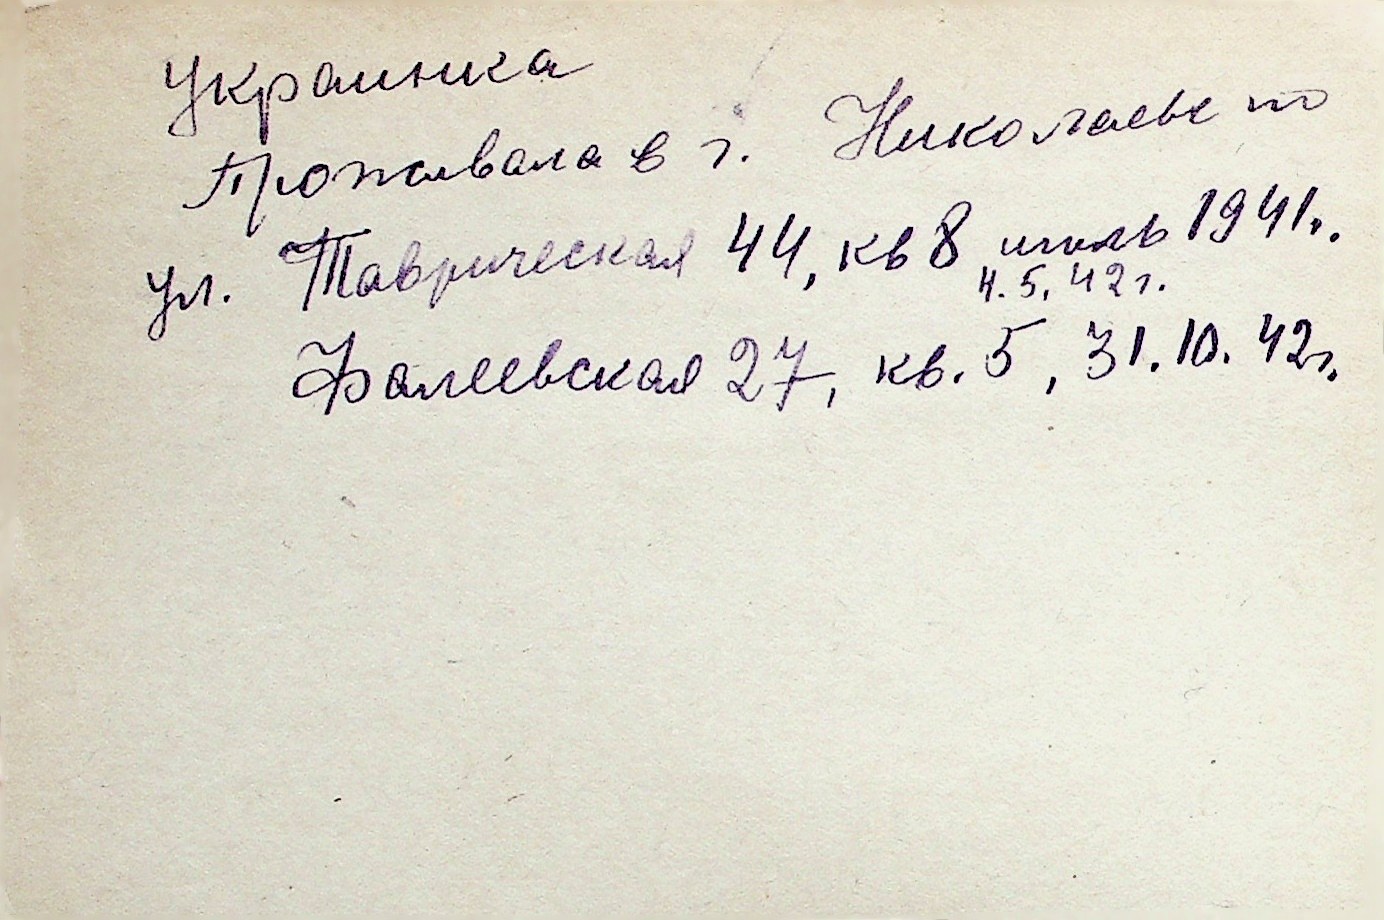 Украинка
Проживала в г. Николаеве по
ул. Таврическая 44, кв 8 июль 1941г.
4.5.42г.
Фалеевская 27, кв. 5, 31.10.42г.